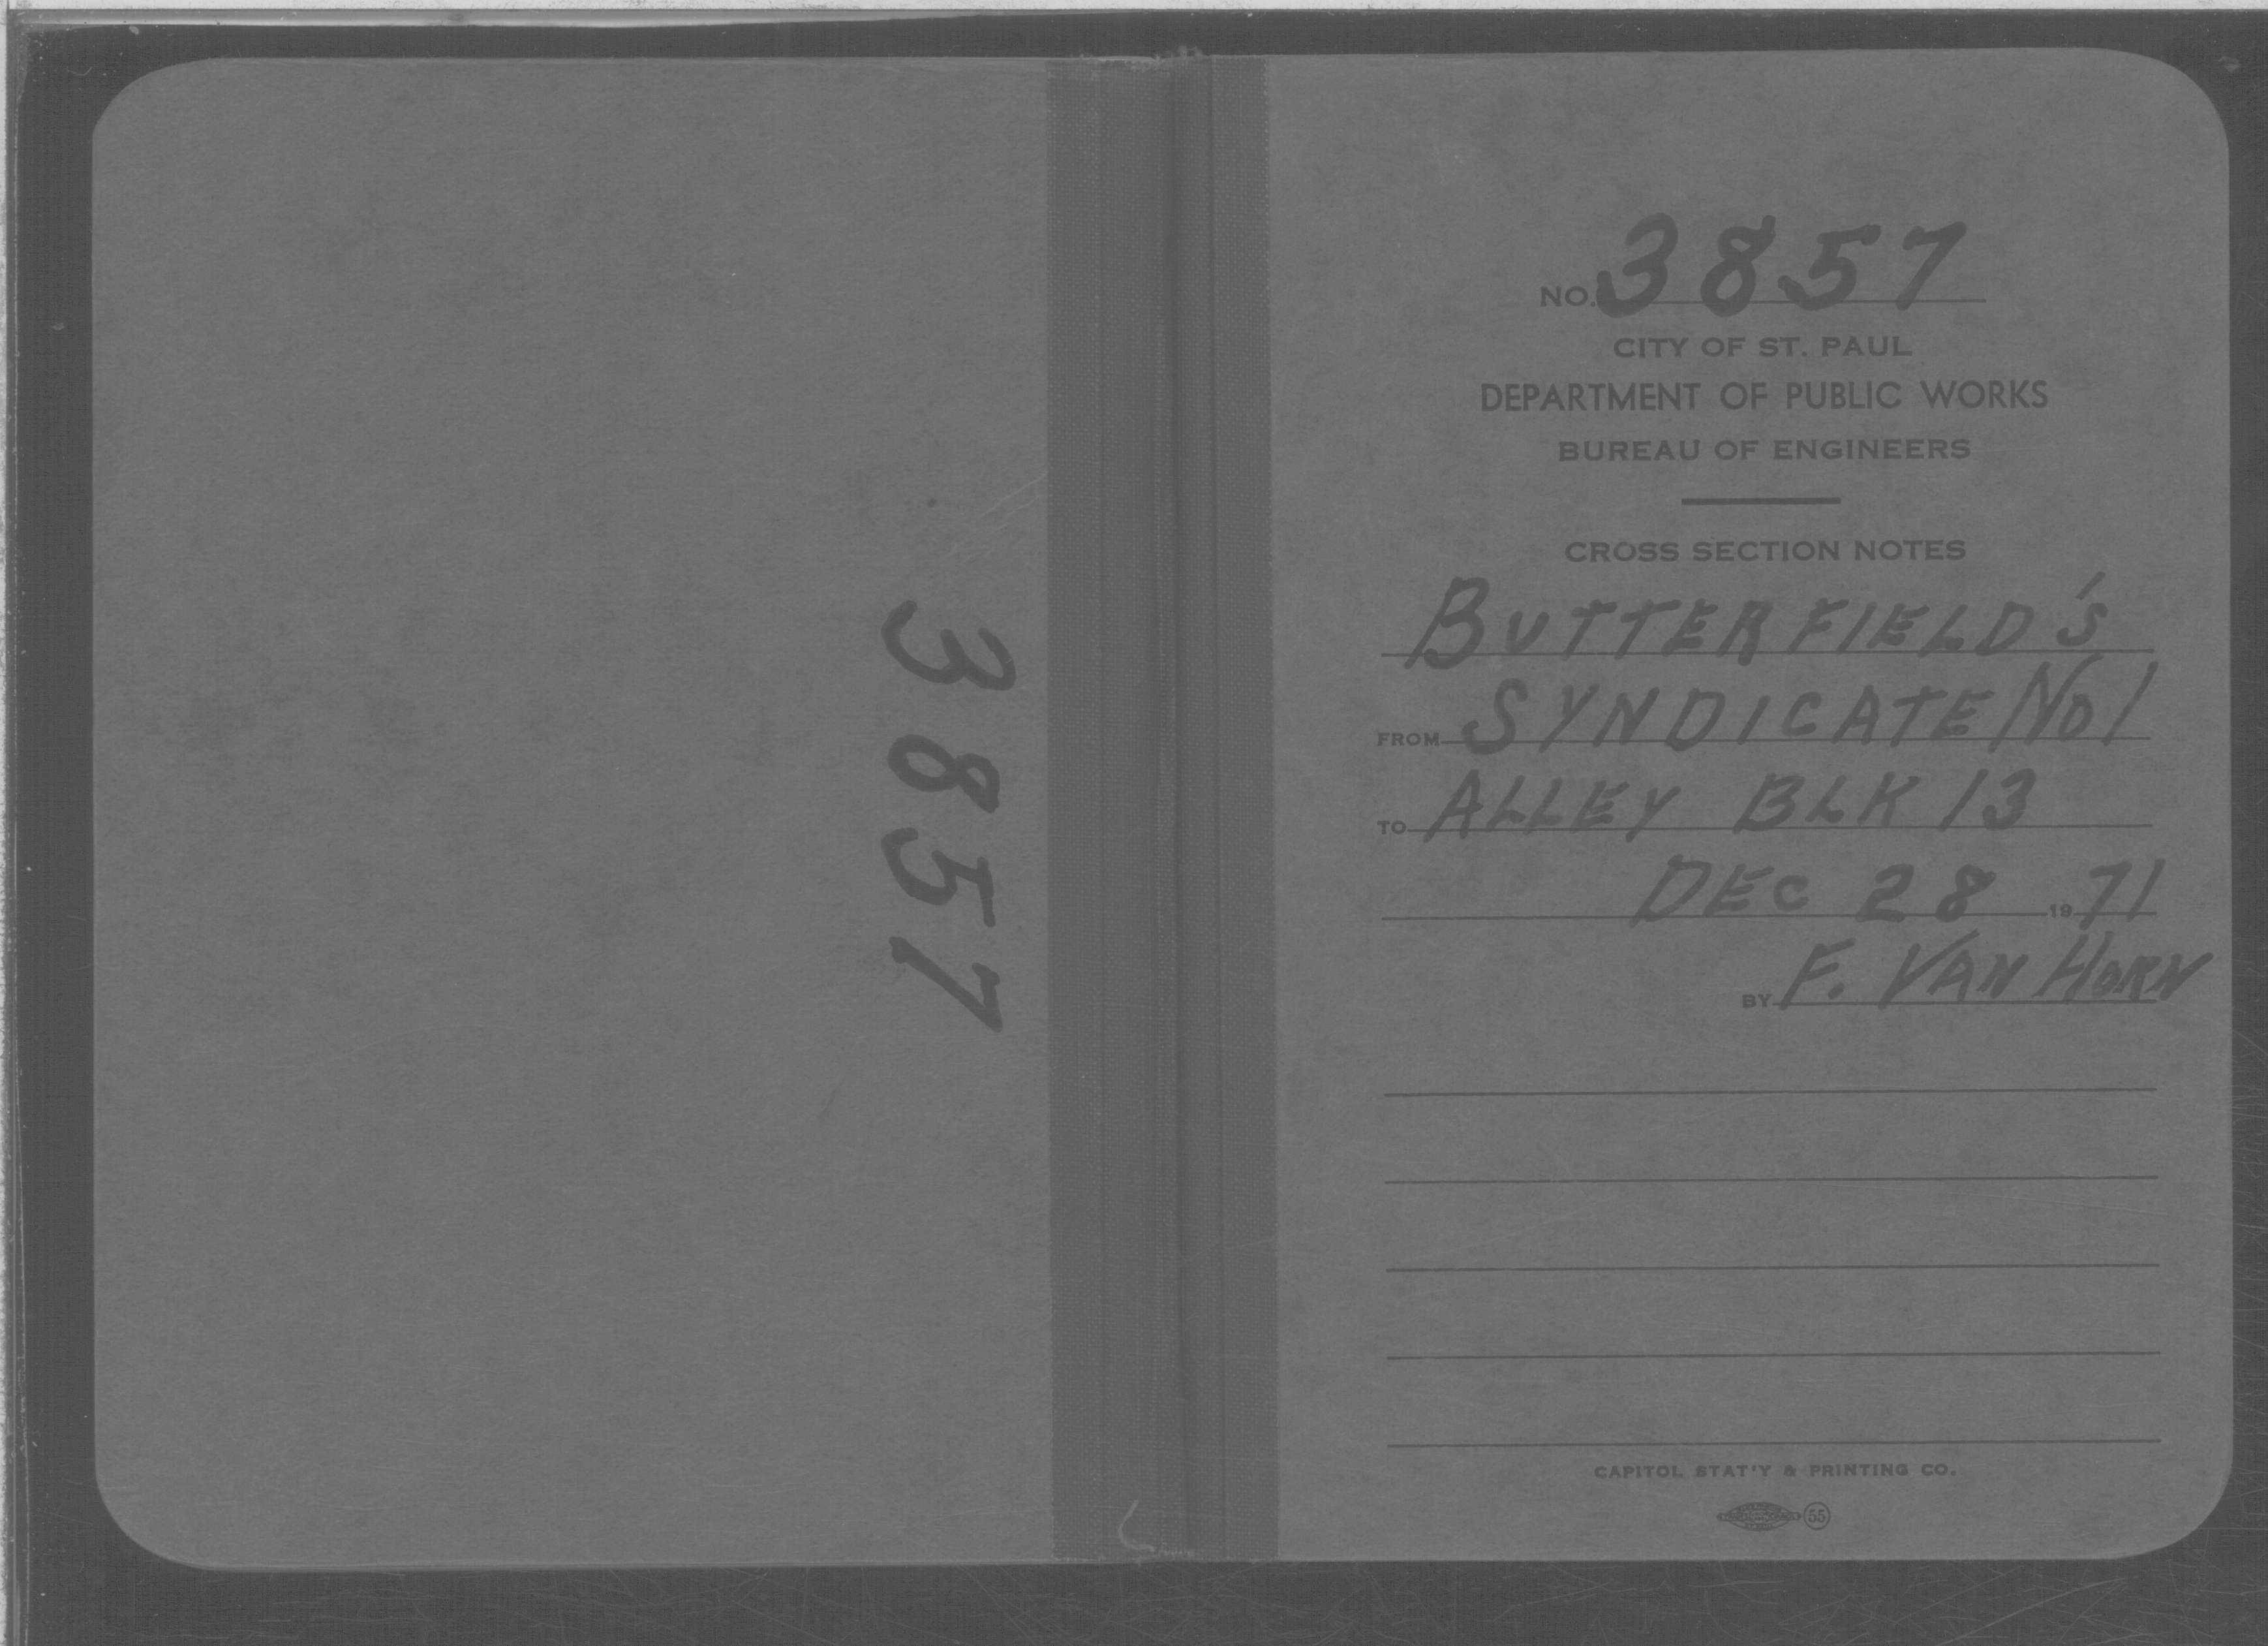 3857
NO. 3857
CITY OF ST. PAUL
DEPARTMENT OF PUBLIC WORKS
BUREAU OF ENGINEERS
CROSS SECTION NOTES
BUTTERFIELD'S
FROM SYNDICATE NO 1
TO ALLEY BLK 13
DEC 28 1971
BY F. VAN HORN
CAPITOL STAT'Y & PRINTING CO.
55